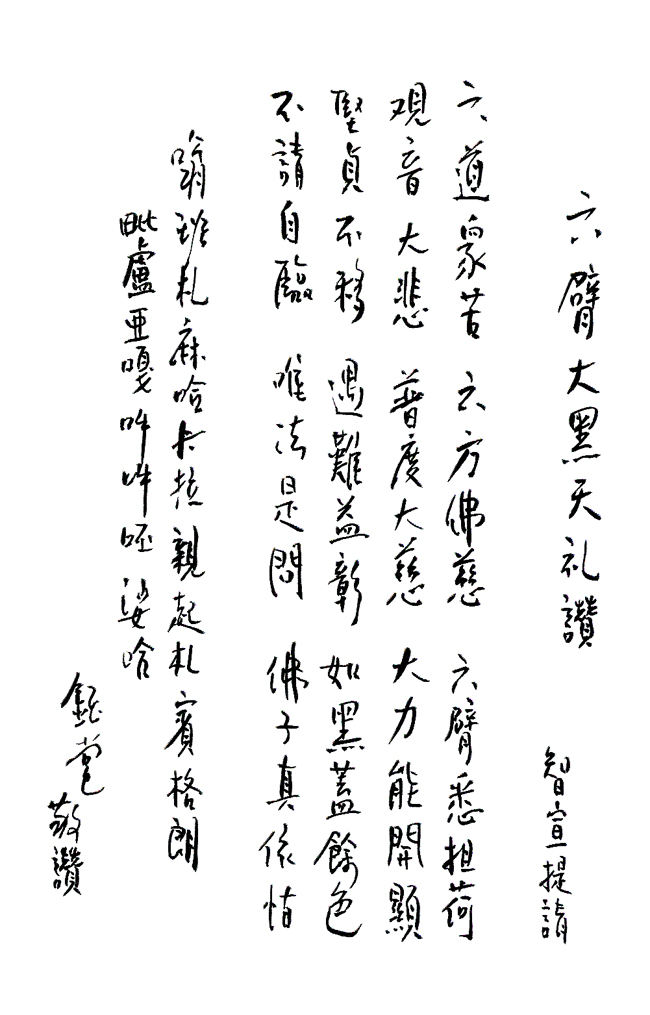 六臂大黑天礼讚
智宣提請
六道衆苦 六方佛慈 六臂悉担荷
观音大悲 普度大慈 大力能開顯
堅貞不移 遇難益彰 如黑蓋餘色
不請自臨 唯法是問 佛子真依怙
嗡班札麻哈卡拉親起札賓格朗
毗盧亚嘎吽吽呸娑哈
敬讚